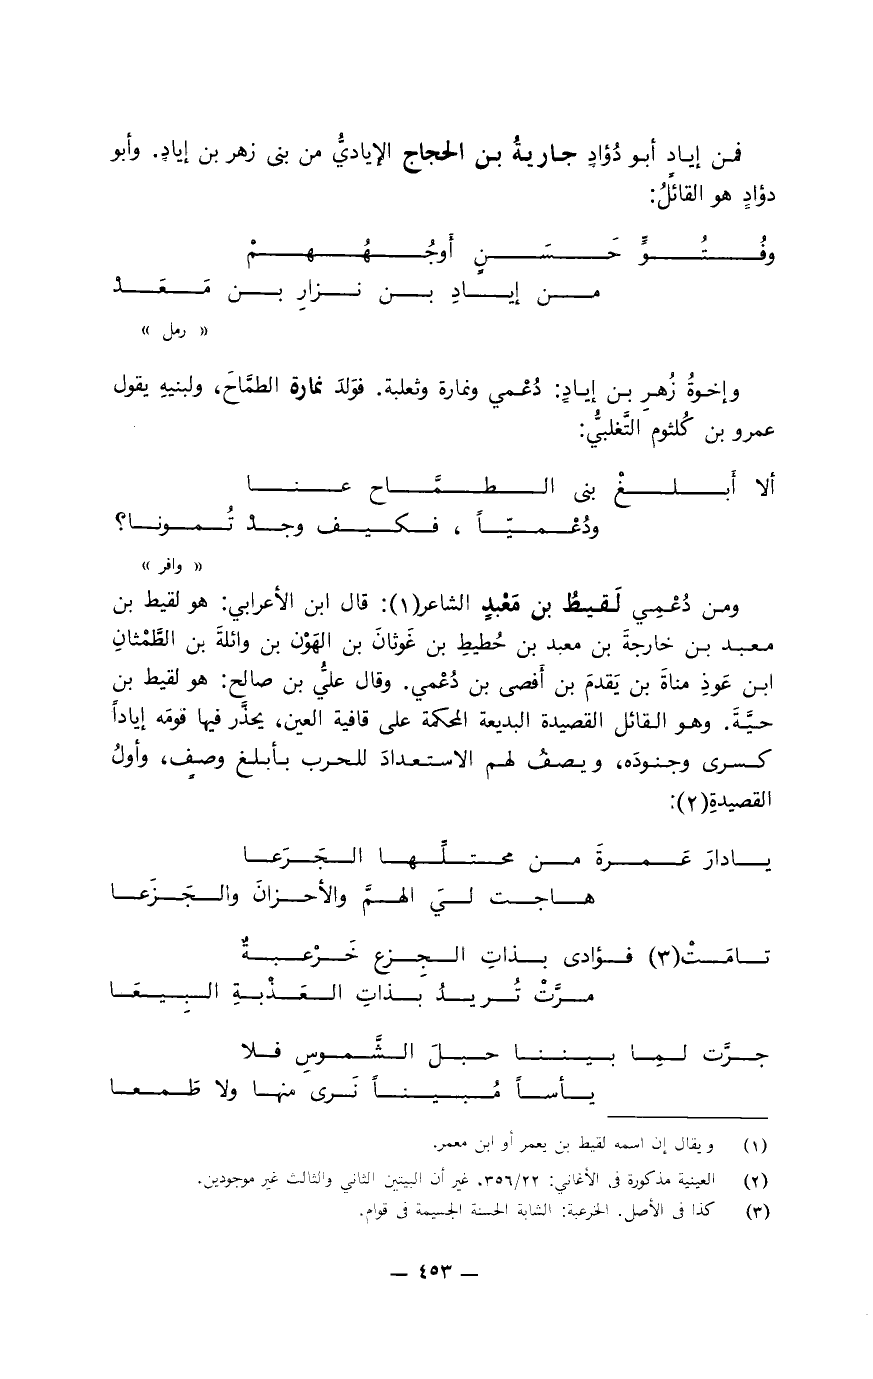 فمن إيادٍ أبو دُؤادٍ جاريةُ بن الحجاج الإياديُّ من بنى زهر بن إيادٍ. وأبو
دؤادٍ هو القائلُ:
وفُتُوٍّ حَسَنٍ أوجُهُهمْ
من إيادِ بن نزارِ بن مَعَدْ
« رمل »
وإخوةُ زُهرِ بن إيادٍ: دُعْمي ونمارة وثعلبة. فوَلدَ نمارة الطمَّاحَ، ولبنيهِ يقول
عمرو بن كُلثوم التَّغلبيُّ:
ألا أَبلغْ بنى الطمَّاح عنا
ودُعْميّاً، فكيف وجدْتُمونا؟
« وافر »
ومن دُعْمِي لَقيطُ بن مَعْبدٍ الشاعر(١): قال ابن الأعرابي: هو لقيط بن
معبد بن خارجةَ بن معبد بن حُطيطِ بن غَوثانَ بن الهَوْن بن وائلةَ بن الطَّمْثانِ
ابن عَوذِ مناةَ بن يَقدمَ بن أَفصى بن دُعْمي. وقال عليُّ بن صالح: هو لقيط بن
حيَّةَ. وهو القائل القصيدة البديعة المحكمة على قافية العين، يحذَّر فيها قومَه إياداً
كسرى وجنودَه، ويصفُ لهم الاستعدادَ للحرب بأبلغ وصفٍ، وأولُ
القصيدةِ(٢):
يادارَ عَمرةَ من محتلِّها الجَرَعا
هاجت ليَ الهمَّ والأحزانَ والجَزَعا
تامَتْ(٣) فؤادى بذاتِ الجِزعِ خَرْعبةٌ
مرَّتْ تُريدُ بذاتِ العَذْبةِ البِيعَا
جرَّت لمِا بيننا حبلَ الشَّموسِ فلا
يأساً مُبيناً نَرى منها ولا طَمعا
(١) ويقال إن اسمه لقيط بن يعمر أو ابن معمر.
(٢) العينية مذكورة فى الأغاني: ٣٥٦/٢٢. غير أن البيتين الثاني والثالث غير موجودين.
(٣) كذا فى الأصل. الخرعبة: الشابة الحسنة الجسيمة فى قوام.
— ٤٥٣ —